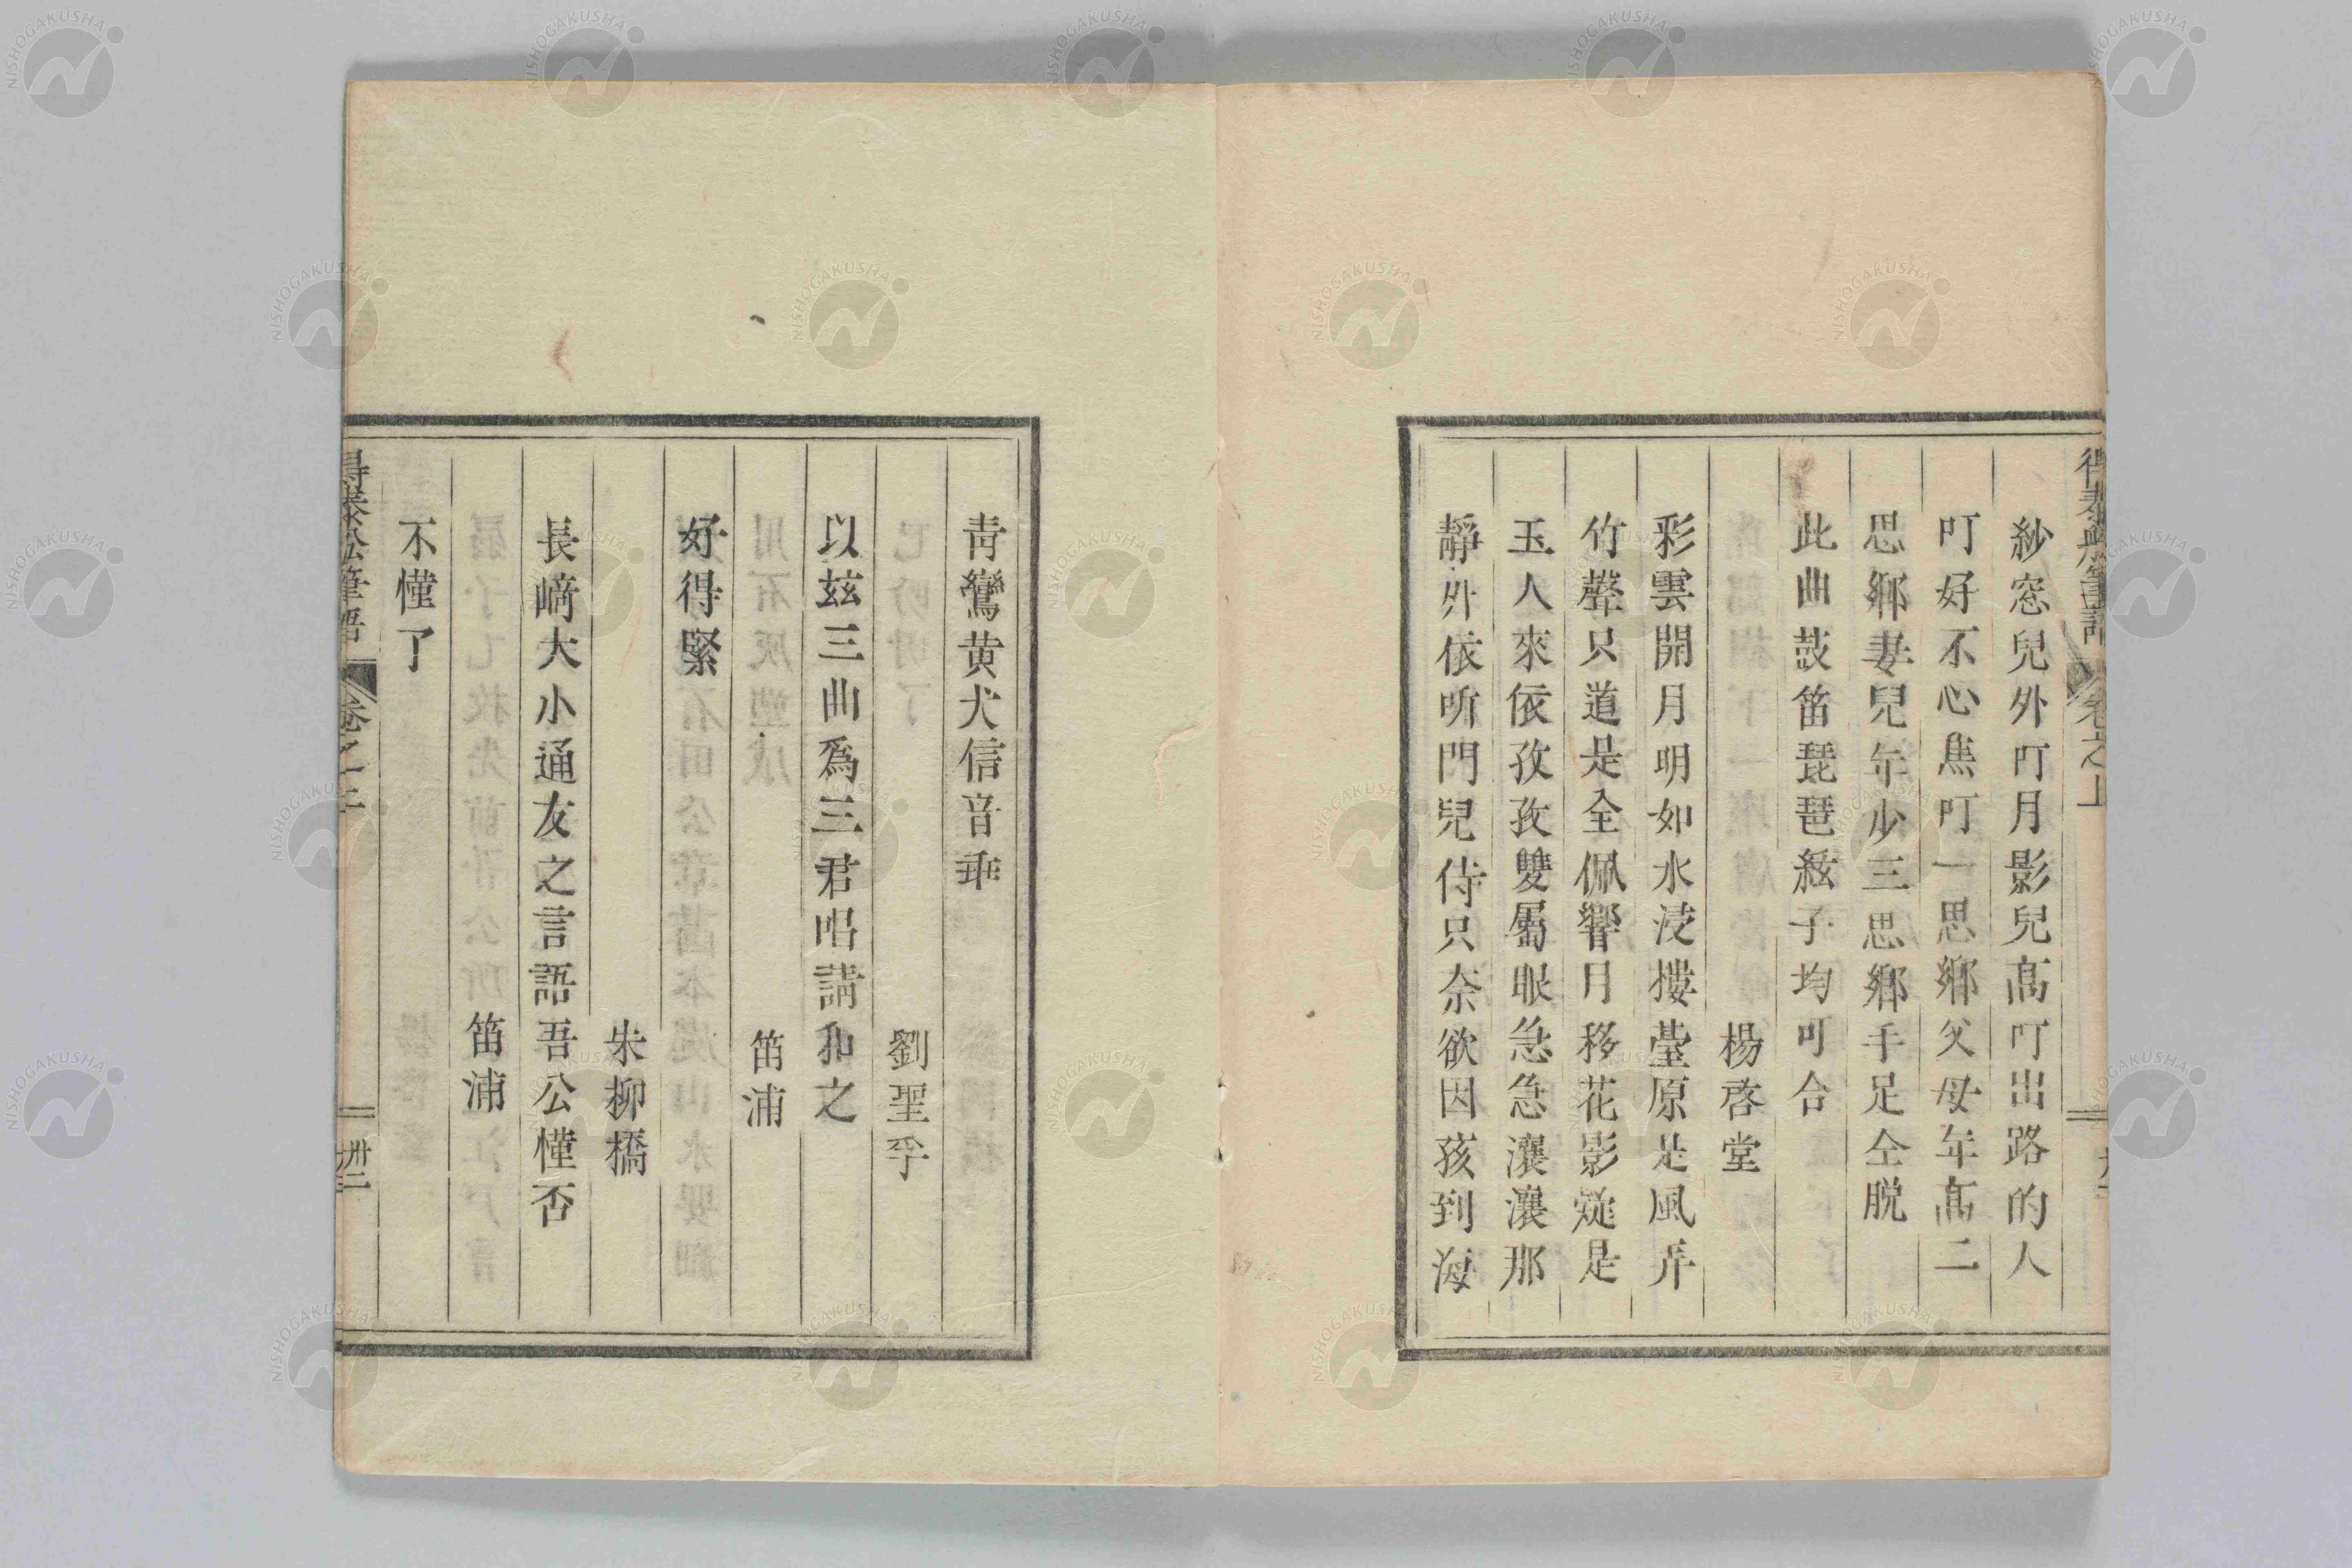 紗窓兒外叮月影兒髙叮出路的人
叮好不心焦叮一思鄕父母年髙二
思鄕妻兒年少三思鄕手足仝脱
此曲鼓笛琵琶絃子均可合
楊啓堂
彩雲開月明如水浸樓臺原是風弄
竹聲只道是全佩響月移花影疑是
玉人來依孜孜雙屬眼急急瀼瀼那
靜外依所門兒侍只奈欲因孩到海
卷之上
靑鸞黄犬信音乖
劉聖孚
以玆三曲爲三君唱請和之
笛浦
好得緊
朱柳橋
長﨑大小通友之言語吾公懂否
笛浦
不懂了
得泰船筆語 卷之上 卅二
NISHOGAKUSHA